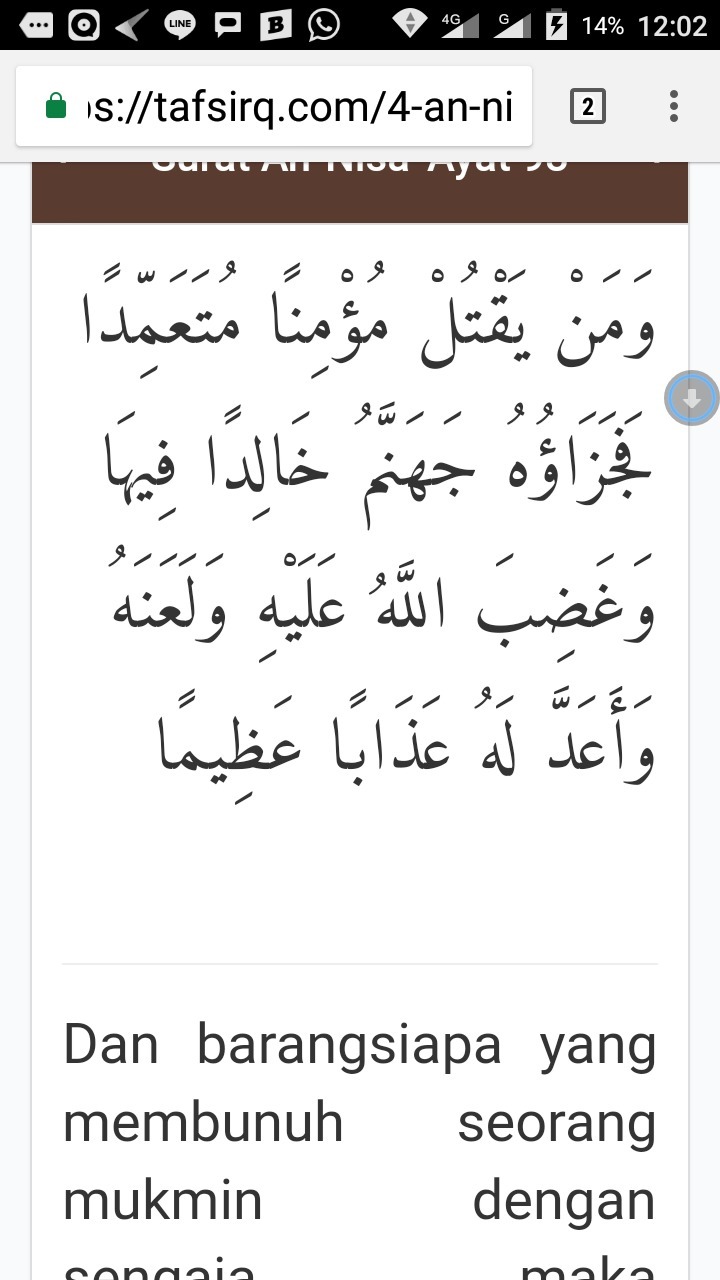 LINE
B
4G
G
14% 12:02
s://tafsirq.com/4-an-ni
2
Surat An-Nisa' Ayat 93
وَمَنْ يَقْتُلْ مُؤْمِنًا مُتَعَمِّدًا
فَجَزَاؤُهُ جَهَنَّمُ خَالِدًا فِيهَا
وَغَضِبَ اللَّهُ عَلَيْهِ وَلَعَنَهُ
وَأَعَدَّ لَهُ عَذَابًا عَظِيمًا
Dan barangsiapa yang
membunuh seorang
mukmin dengan
sengaja maka